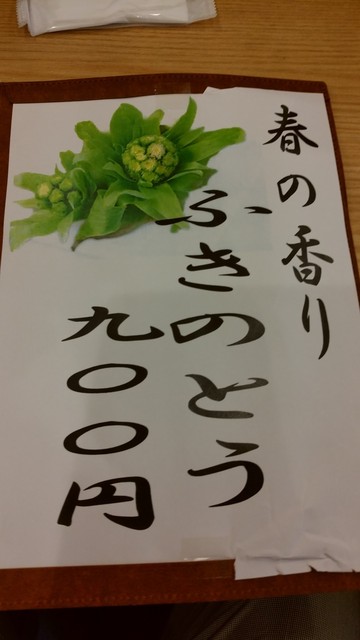 春の香り
ふきのとう
九〇〇円